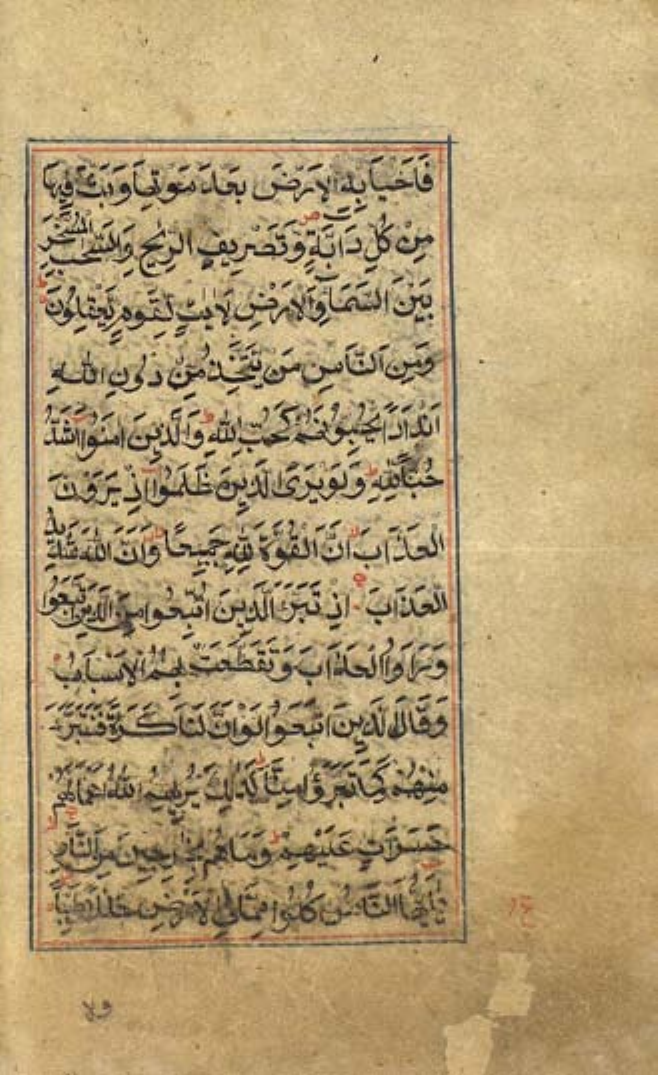 فَاَحْيَا بِهِ الْاَرْضَ بَعْدَ مَوْتِهَا وَبَثَّ فِيْهَا
مِنْ كُلِّ دَابَّةٍ وَتَصْرِيْفِ الرِّيٰحِ وَالسَّحَابِ الْمُسَخَّرِ
بَيْنَ السَّمَآءِ وَالْاَرْضِ لَاٰيٰتٍ لِقَوْمٍ يَعْقِلُوْنَ
وَمِنَ النَّاسِ مَنْ يَتَّخِذُ مِنْ دُوْنِ اللّٰهِ
اَنْدَادًا يُحِبُّوْنَهُمْ كَحُبِّ اللّٰهِ وَالَّذِيْنَ اٰمَنُوْا اَشَدُّ
حُبًّا لِلّٰهِ وَلَوْ يَرَى الَّذِيْنَ ظَلَمُوْا اِذْ يَرَوْنَ
الْعَذَابَ اَنَّ الْقُوَّةَ لِلّٰهِ جَمِيْعًا وَاَنَّ اللّٰهَ شَدِيْدُ
الْعَذَابِ اِذْ تَبَرَّاَ الَّذِيْنَ اتُّبِعُوْا مِنَ الَّذِيْنَ اتَّبَعُوْا
وَرَاَوُا الْعَذَابَ وَتَقَطَّعَتْ بِهِمُ الْاَسْبَابُ
وَقَالَ الَّذِيْنَ اتَّبَعُوْا لَوْ اَنَّ لَنَا كَرَّةً فَنَتَبَرَّاَ
مِنْهُمْ كَمَا تَبَرَّءُوْا مِنَّا كَذٰلِكَ يُرِيْهِمُ اللّٰهُ اَعْمَالَهُمْ
حَسَرَاتٍ عَلَيْهِمْ وَمَا هُمْ بِخَارِجِيْنَ مِنَ النَّارِ
يٰاَيُّهَا النَّاسُ كُلُوْا مِمَّا فِي الْاَرْضِ حَلٰلًا طَيِّبًا